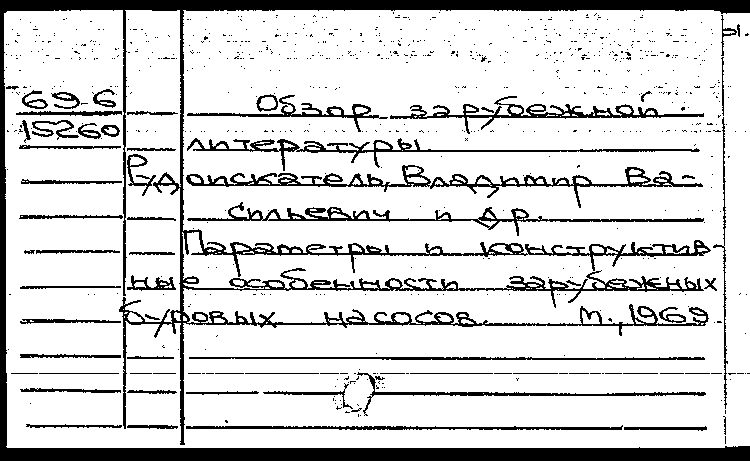 69-6
15260
Обзор зарубежной
литературы.
Рудоискатель, Владимир Ва-
сильевич и др.
Параметры и конструктив-
ные особенности зарубежных
буровых насосов. М., 1969